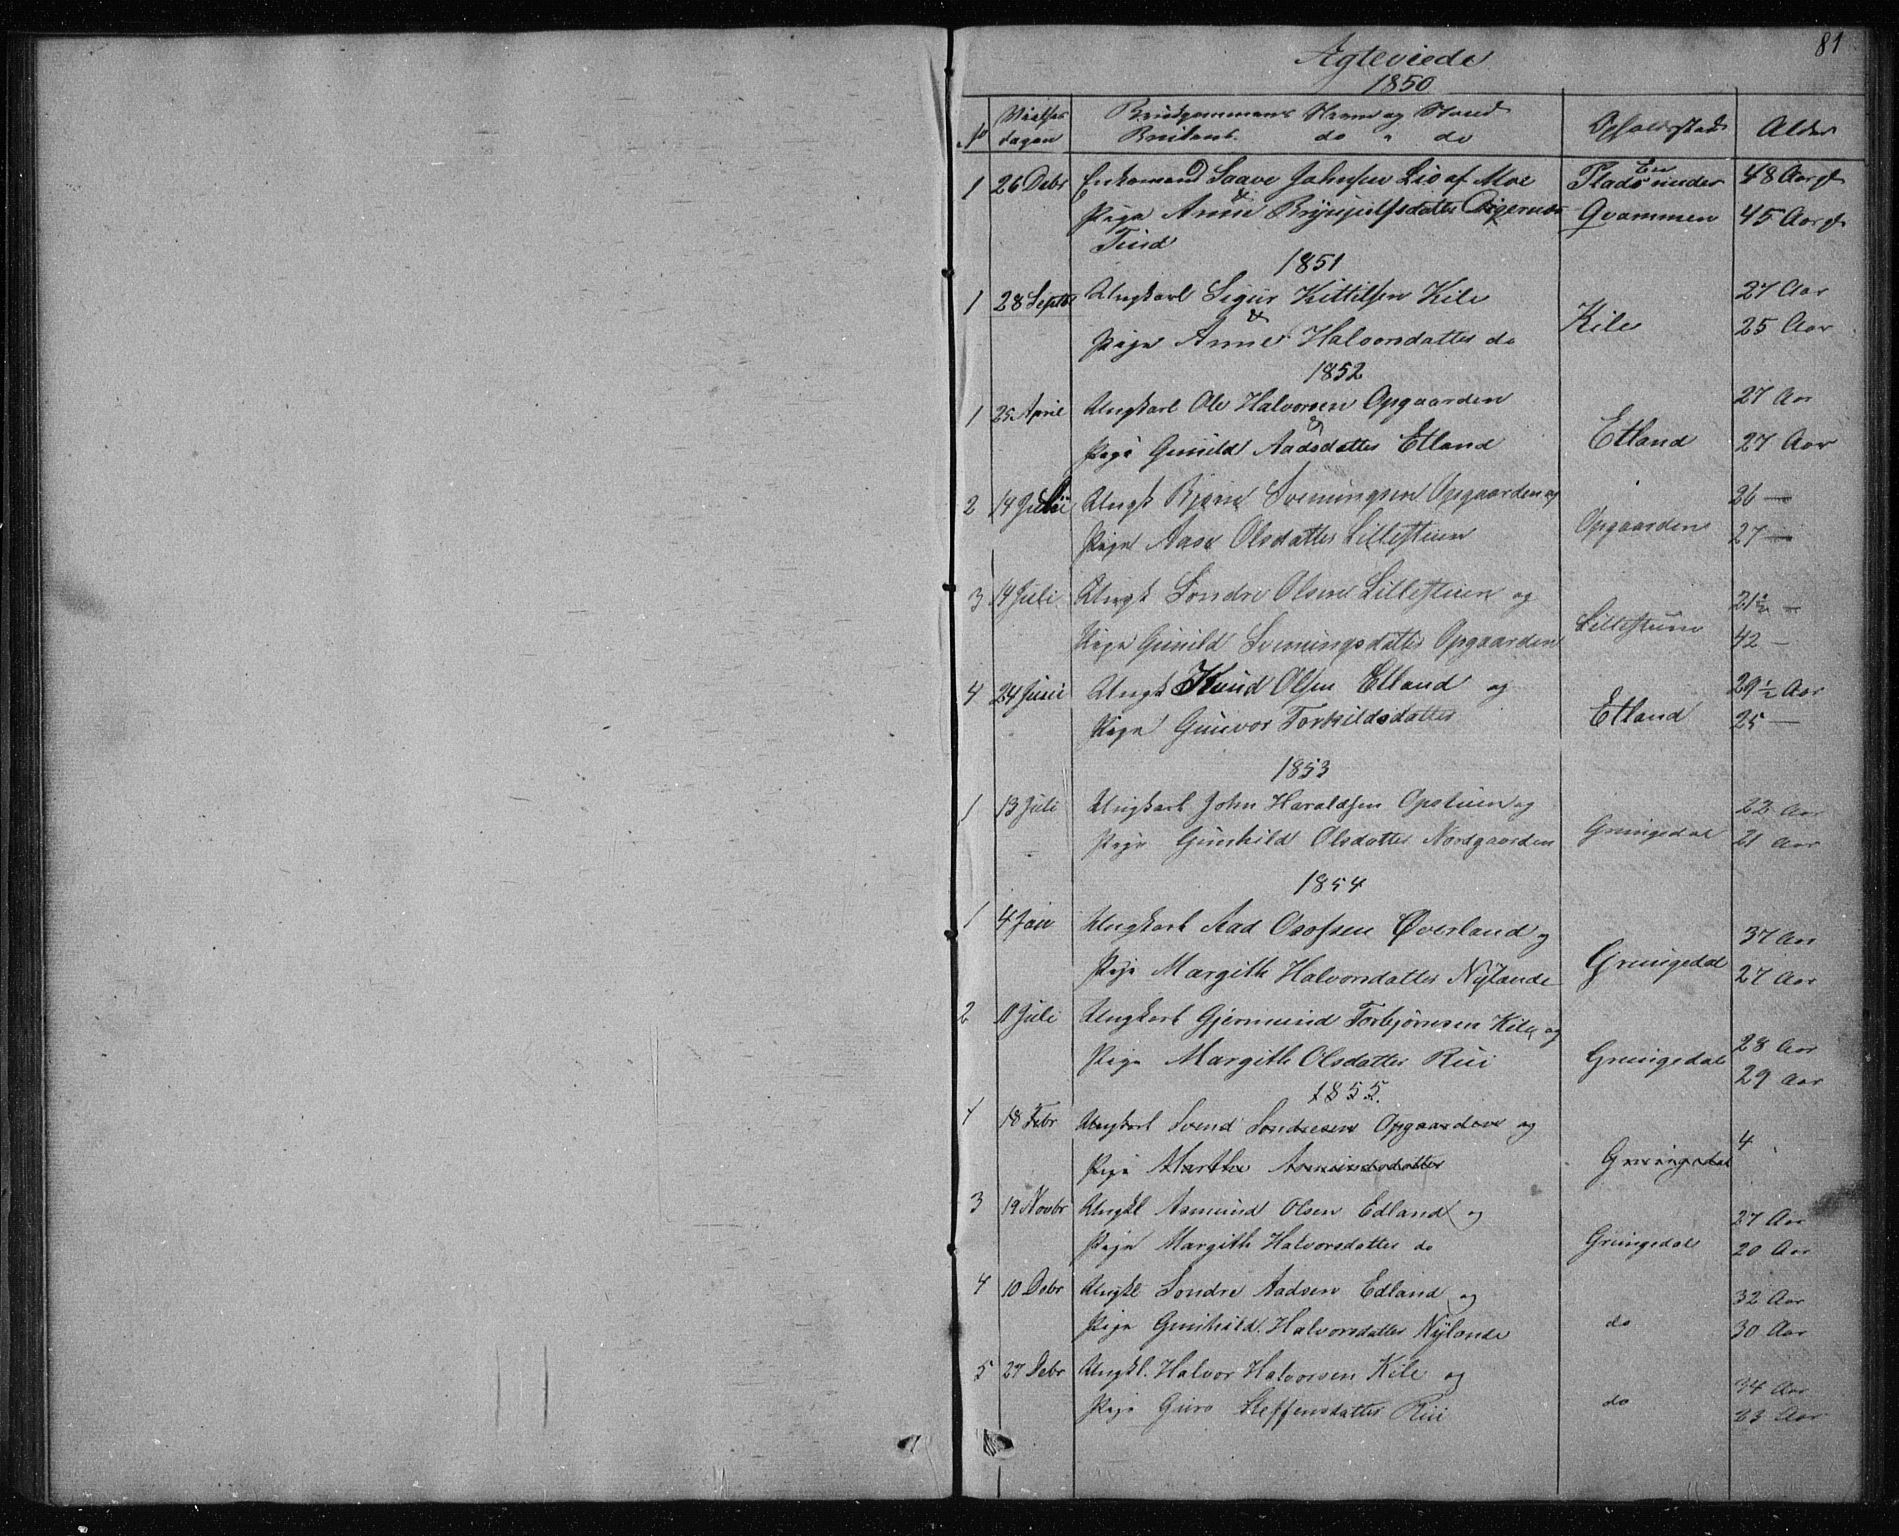 81
Ægteviede
1850
No Vielses dagen Brudgommens Navn og Stand Opholdssted Alder
Brudens do " do
1 26 Debr Enkemand Saave Johnsen Lio af Moe Pladsen under 48 Aar gl
& Pige Anne Brynjulfsdatter Qvammen 45 Aar gl
1851
1 28 Septbr Ungkarl Sigur Kittilsen Kile Kile 27 Aar
& Pige Anne Halvorsdatter do 25 Aar
1852
1 25 April Ungkarl Ole Halvorsen Opgaarden 27 Aar
& Pige Gunild Aadsdatter Etland Etland 27 Aar
2 14 Juli Ungk Bjørn Sveningsen Opgaarden og Opgaarden 26 —
Pige Aase Olsdatter Lillestuen 27 —
3 14 Juli Ungk Sondre Olsen Lillestuen og Lillestuen 21½ —
Pige Gunild Sveningsdatter Opgaarden 42 —
4 24 Juni Ungk Knud Olsen Etland og Etland 29½ Aar
Pige Gunvor Torkildsdatter 25 —
1853
1 13 Juli Ungkarl John Haraldsen Opstuen og Grungedal 22 Aar
Pige Gunhild Olsdatter Nordgaarden 21 Aar
1854
1 4 Jan Ungkarl Aad Olofsen Øverland og Grungedal 37 Aar
Pige Margith Halvorsdatter Nylande 27 Aar
2 11 Juli Ungkarl Gjermund Torbjørnsen Kile og Grungedal 28 Aar
Pige Margith Olsdatter Rui 29 Aar
1855.
1 18 Febr Ungkarl Svend Sondresen Opgaarden og Grungedal 4
Pige Marthe Asmundsdatter
3 19 Novbr Ungkl Asmund Olsen Edland og Grungedal 27 Aar
Pige Margith Halvorsdatter do 20 Aar
4 10 Debr Ungkl Sondre Aadsen Edland og do 32 Aar
Pige Gunhild Halvorsdatter Nylande 30 Aar
5 27 Debr Ungkl. Halvor Halvorsen Kile og do 34 Aar
Pige Guro Steffensdatter Rui 23 Aar